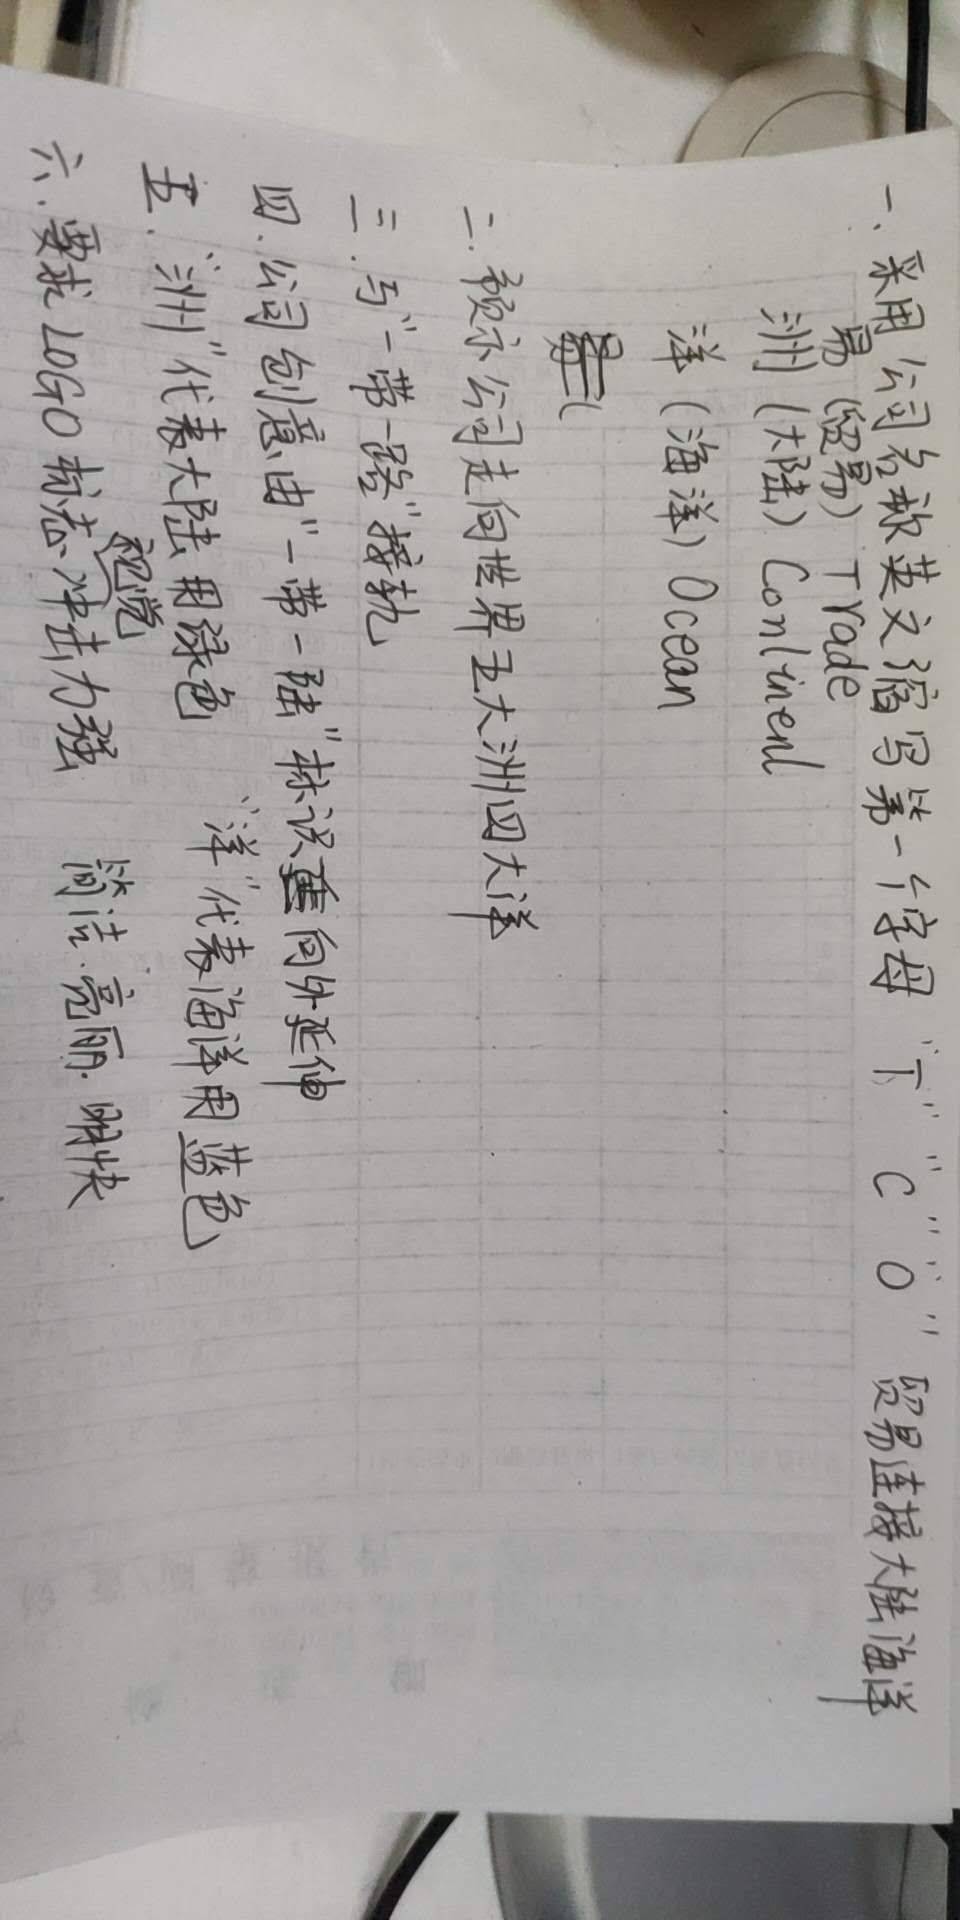 一、采用公司名称英文缩写第一个字母 "T" "C" "O" 贸易连接大陆海洋
易(贸易) Trade
洲(大陆) Continent
洋(海洋) Ocean
二.预示公司走向世界五大洲四大洋
三.与"一带一路"接轨
四.公司创意由"一带一陆"标识 向外延伸
五."洲"代表大陆用绿色 "洋"代表海洋用蓝色
六.要求LOGO标志视觉冲击力强 简洁.亮丽.明快